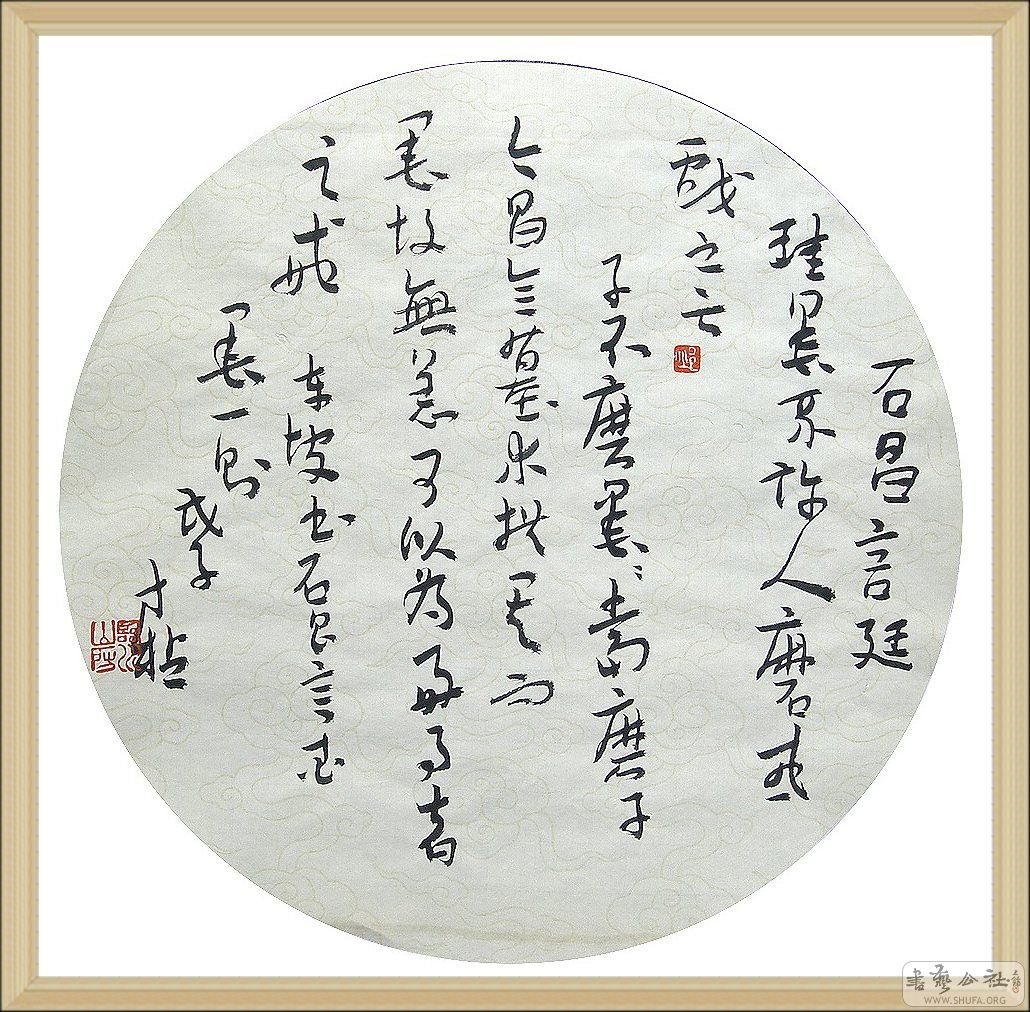 石昌言廷
珪墨不許人磨或
戲之云
子不磨墨〻當磨子
今昌言墓木拱矣而
墨故無恙可以為好事者
之戒 东坡书石昌言
墨一則
戊子
書藝公社
WWW.SHUFA.ORG